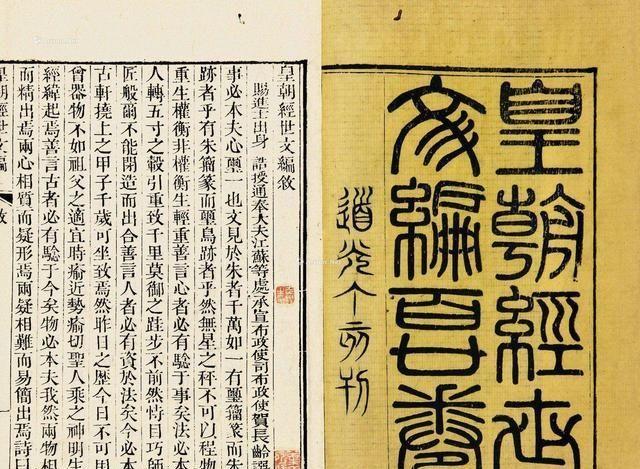 皇朝經世
文編百廿卷
皇朝經世文編敘
賜進士出身 誥授通奉大夫江蘇等處承宣布政使司布政使賀長齡譔
事必本夫心璽一也文見於朱者千萬如一有璽籀篆而朱
跡者乎有朱籀篆而璽鳥跡者乎然無星之秤不可以程物
重生權衡非權衡生輕重善言心者必有驗于事矣法必本
人轉五寸之轂引重致千里莫御之跬步不前然恃目巧師
匠般爾不能閉造而出合善言人者必有資於法矣今必本
古軒撓上之甲子千歲可坐致焉然昨日之歷今日不可
曾器物不如祖父之適宜時瘉近勢瘉切聖人乘之神明生
經緯起焉善言古者必有驗于今矣物必本夫我然兩物相
而精出焉兩心相質而疑形焉兩疑相難而易簡出焉詩曰
皇朝經世文編 敘